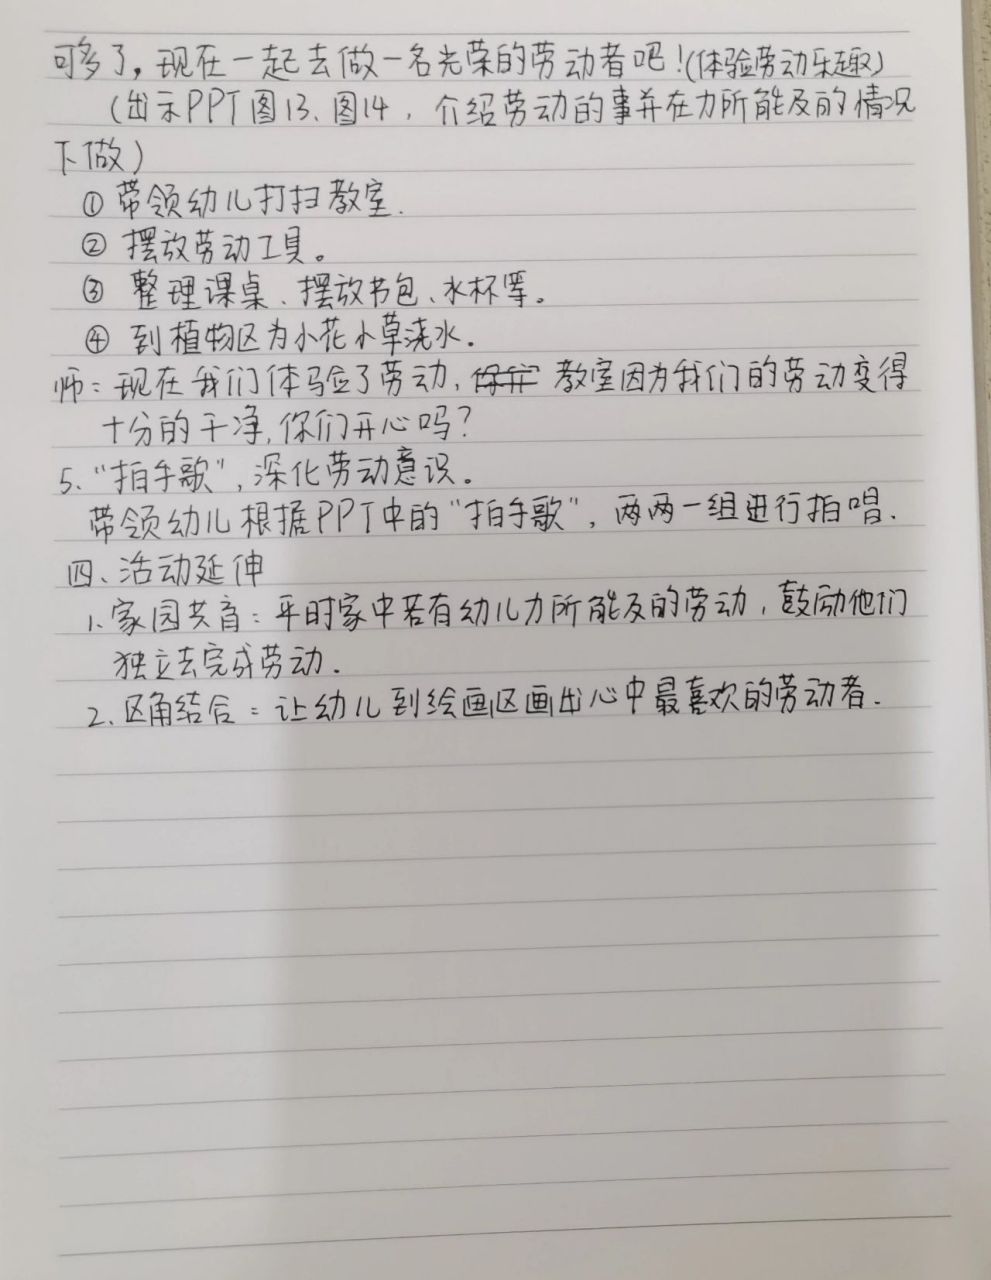 可多了，现在一起去做一名光荣的劳动者吧！（体验劳动乐趣）
（出示PPT图13、图14，介绍劳动的事并在力所能及的情况
下做）
① 带领幼儿打扫教室.
② 摆放劳动工具。
③ 整理课桌、摆放书包、水杯等。
④ 到植物区为小花小草浇水.
师：现在我们体验了劳动，教室因为我们的劳动变得
十分的干净,你们开心吗？
5、“拍手歌”，深化劳动意识。
带领幼儿根据PPT中的“拍手歌”，两两一组进行拍唱.
四、活动延伸
1、家园共育：平时家中若有幼儿力所能及的劳动，鼓励他们
独立去完成劳动.
2、区角结合：让幼儿到绘画区画出心中最喜欢的劳动者.